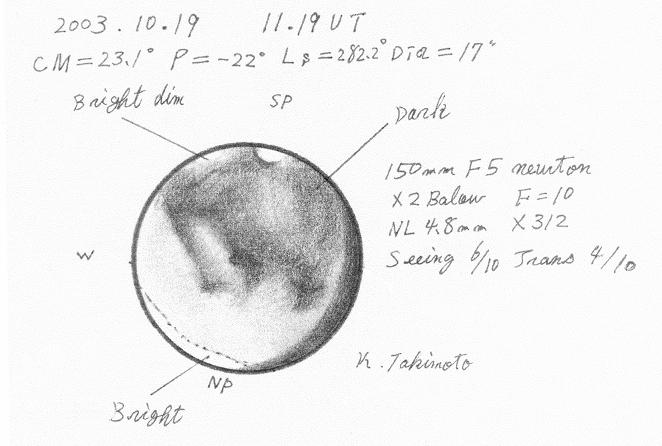 2003.10.19 11.19 UT
CM=23.1° P=-22° Ls=282.2° Dia=17"
Bright dim
SP
Dark
150mm F5 newton
X2 Balow F=10
NL 4.8mm X312
W
Seeing 6/10 Trans 4/10
K. Takimoto
NP
Bright